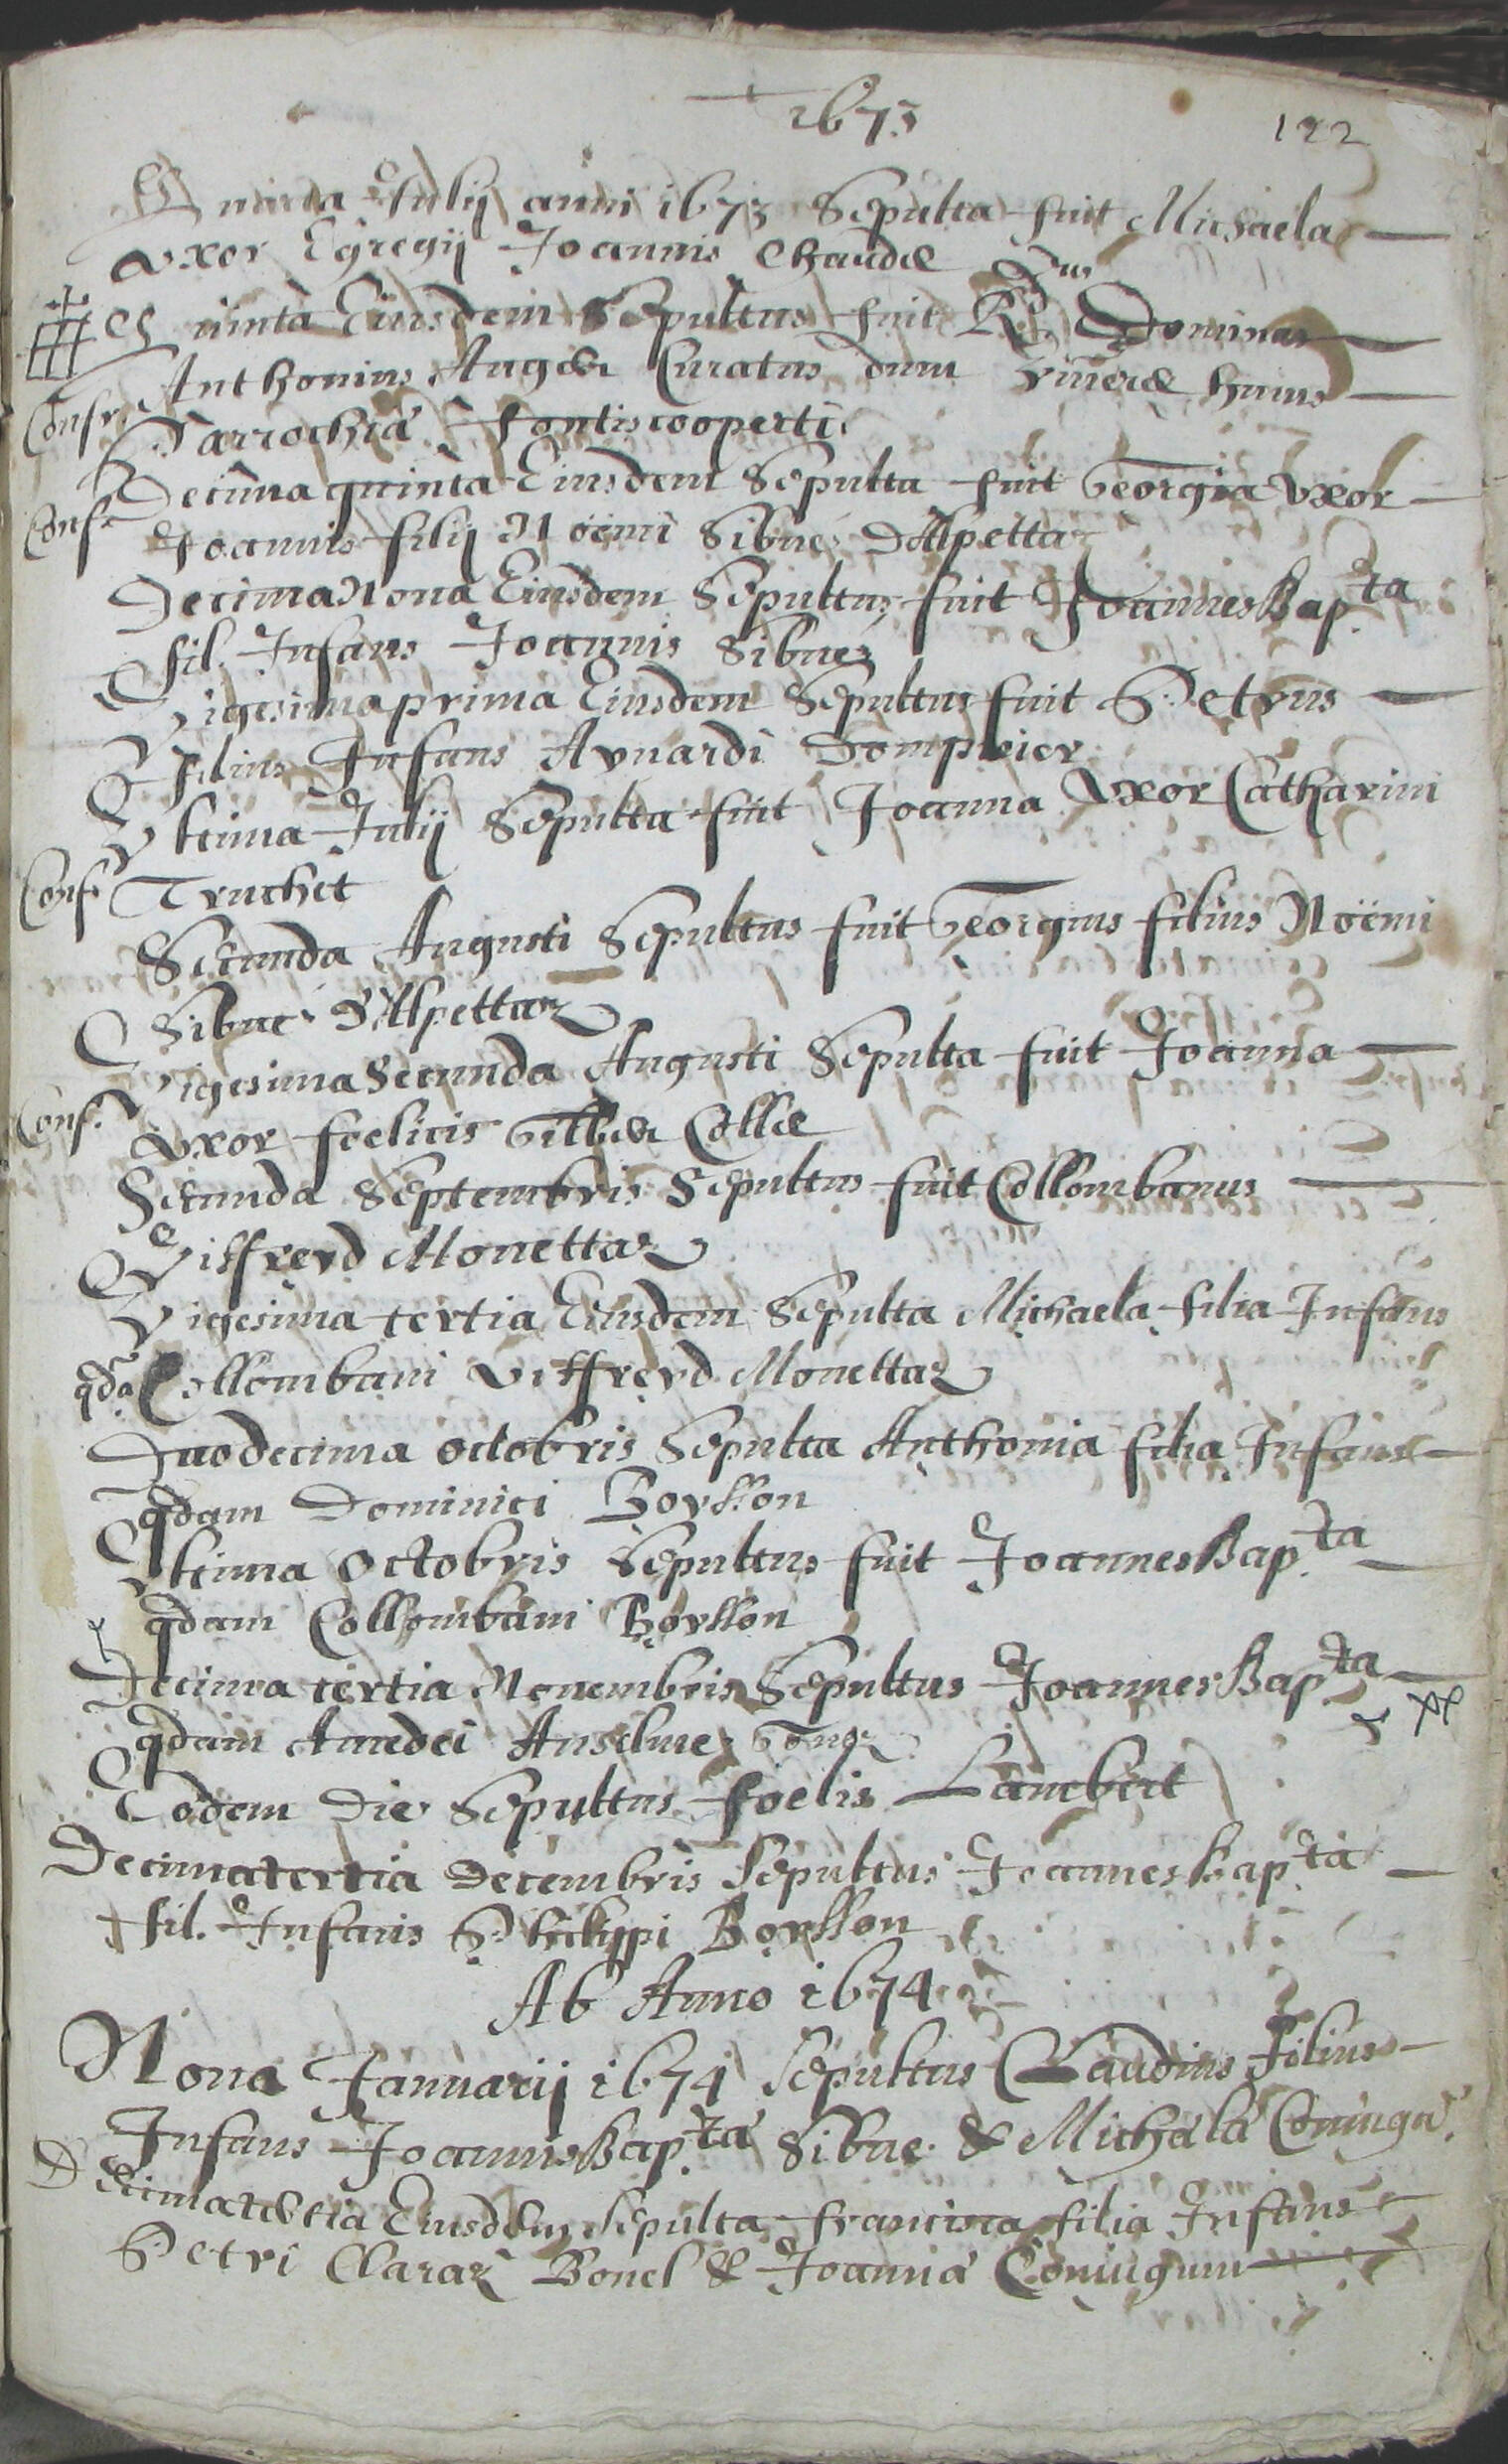 1673
122
Quarta Julij anni 1673 Sepulta fuit Michaela
uxor Egregij Joannis Chaudé
Quinta Eiusdem Sepultus fuit Rdus Dominus
Confr. Anthonius Auger Curatus dum viveret huius
Parrochiæ fontiscooperti
Decima quinta Eiusdem Sepulta fuit Georgia Uxor
Confr Joannis filij Noëmi Sibue D'Alpetta
Decima Nona Eiusdem Sepultus fuit Joannes Bap.ta
fil. Infans Joannis Sibue
Vigesima prima Eiusdem Sepultus fuit Petrus
Filius Infans Aynardi Dompnier
Ultima Julij Sepulta fuit Joanna Uxor Catharini
Conf. Truchet
Secunda Augusti Sepultus fuit Georgius filius Noëmi
Sibue D'Alpettaz
Vigesima Secunda Augusti Sepulta fuit Joanna
Conf. uxor foelicis Collet
Secunda Septembris Sepultus fuit Collombanus
Viffreyd Monettaz
Vigesima tertia Eiusdem Sepulta Michaela filia Infans
qda Collombani viffreyd Monettaz
Duodecima octobris Sepulta Anthonia filia Infans
qdam Dominici Boysson
Ultima Octobris Sepultus fuit Joannes Bap.ta
qdam Collombani Boysson
Decima tertia Novembris Sepultus Joannes Bap.ta
qdam Amedei Anselme
Eodem Die Sepultus foelis Lambert
Decima tertia Decembris Sepultus Joannes Bap.ta
fil. Infans Philippi Boysson
Ab Anno 1674
Nona Januarij 1674 Sepultus Claudius Filius
Infans Joannis Bap.tæ Sibue & Michælæ Coniugu.
Decima tertia Eiusdem Sepulta francisca filia Infans
Petri Claraz Bonel & Joannæ Coniugum